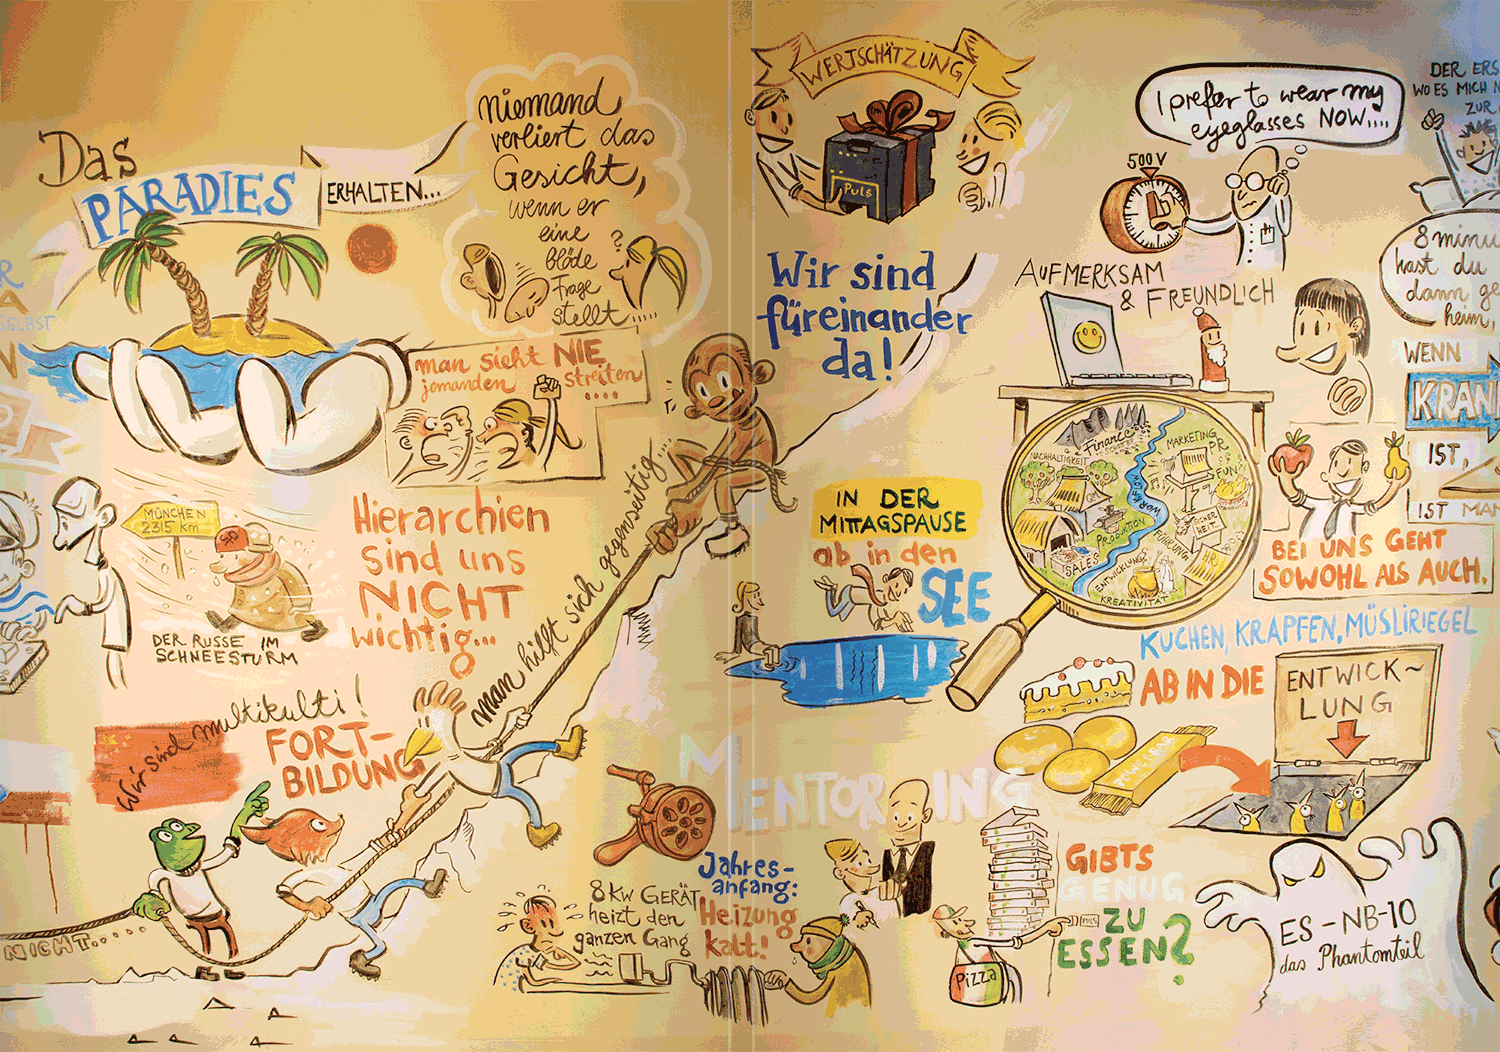 Das
PARADIES
ERHALTEN...
niemand
verliert das
Gesicht,
wenn er
eine
blöde
Frage
stellt.....
?
man sieht NIE
jemanden streiten
....
SELBST
MÜNCHEN
2315 km
DER RUSSE IM
SCHNEESTURM
Hierarchien
sind uns
NICHT
wichtig...
man hilft sich gegenseitig...
Wir sind multikulti!
FORT-
BILDUNG
NICHT......
WERTSCHÄTZUNG
PULS
Wir sind
füreinander
da!
IN DER
MITTAGSPAUSE
ab in den
SEE
MENTORING
8 KW GERÄT
heizt den
ganzen Gang
Jahres-
anfang:
Heizung
kalt!
I prefer to wear my
eyeglasses NOW....
500 V
AUFMERKSAM
& FREUNDLICH
Finance
NACHHALTIGKEIT
MARKETING
PR
FUN
QM
WORKFLOW
PRODUKTION
SICHER
HEIT
FÜHRUNG
HR
SALES
ENTWICKLUNG
KREATIVITÄT
DER ERS
WO ES MICH N
ZUR
8 minu
hast du
dann ge
heim,
WENN
KRAN
IST,
IST MAN
BEI UNS GEHT
SOWOHL ALS AUCH.
KUCHEN, KRAPFEN, MÜSLIRIEGEL
AB IN DIE
ENTWICK~
LUNG
POWERBAR
GIBTS
GENUG
ZU
ESSEN?
PULS
Pizza
ES-NB-10
das Phantomteil